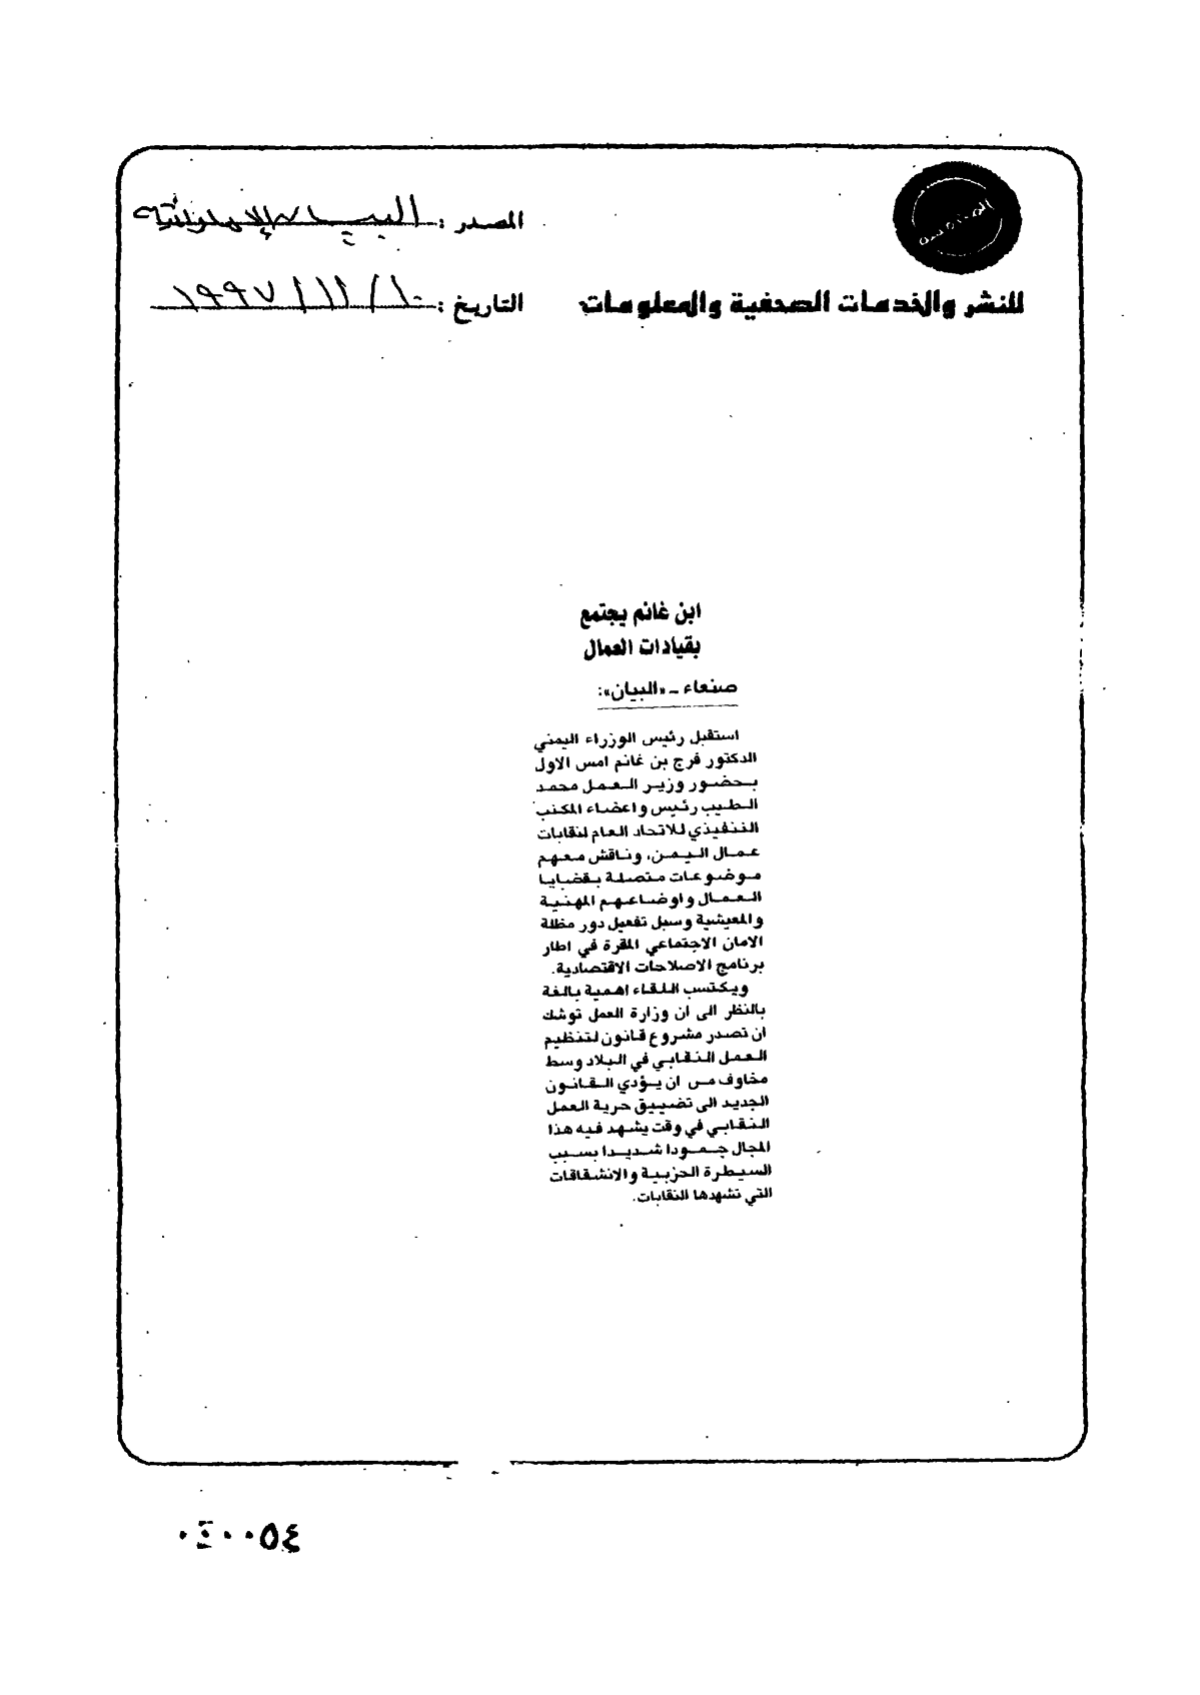 المصدر : البيان الإماراتية
للنشر والخدمات الصحفية والمعلومات
التاريخ : ١٠ / ١١ / ١٩٩٧
ابن غانم يجتمع
بقيادات العمال
صنعاء - «البيان»:
استقبل رئيس الوزراء اليمني
الدكتور فرج بن غانم امس الاول
بحضور وزير العمل محمد
الطيب رئيس واعضاء المكتب
التنفيذي للاتحاد العام لنقابات
عمال اليمن، وناقش معهم
موضوعات متصلة بقضايا
العمال واوضاعهم المهنية
والمعيشية وسبل تفعيل دور مظلة
الامان الاجتماعي المقرة في اطار
برنامج الاصلاحات الاقتصادية.
ويكتسب اللقاء اهمية بالغة
بالنظر الى ان وزارة العمل توشك
ان تصدر مشروع قانون لتنظيم
العمل النقابي في البلاد وسط
مخاوف من ان يؤدي القانون
الجديد الى تضييق حرية العمل
النقابي في وقت يشهد فيه هذا
المجال جمودا شديدا بسبب
السيطرة الحزبية والانشقاقات
التي تشهدها النقابات.